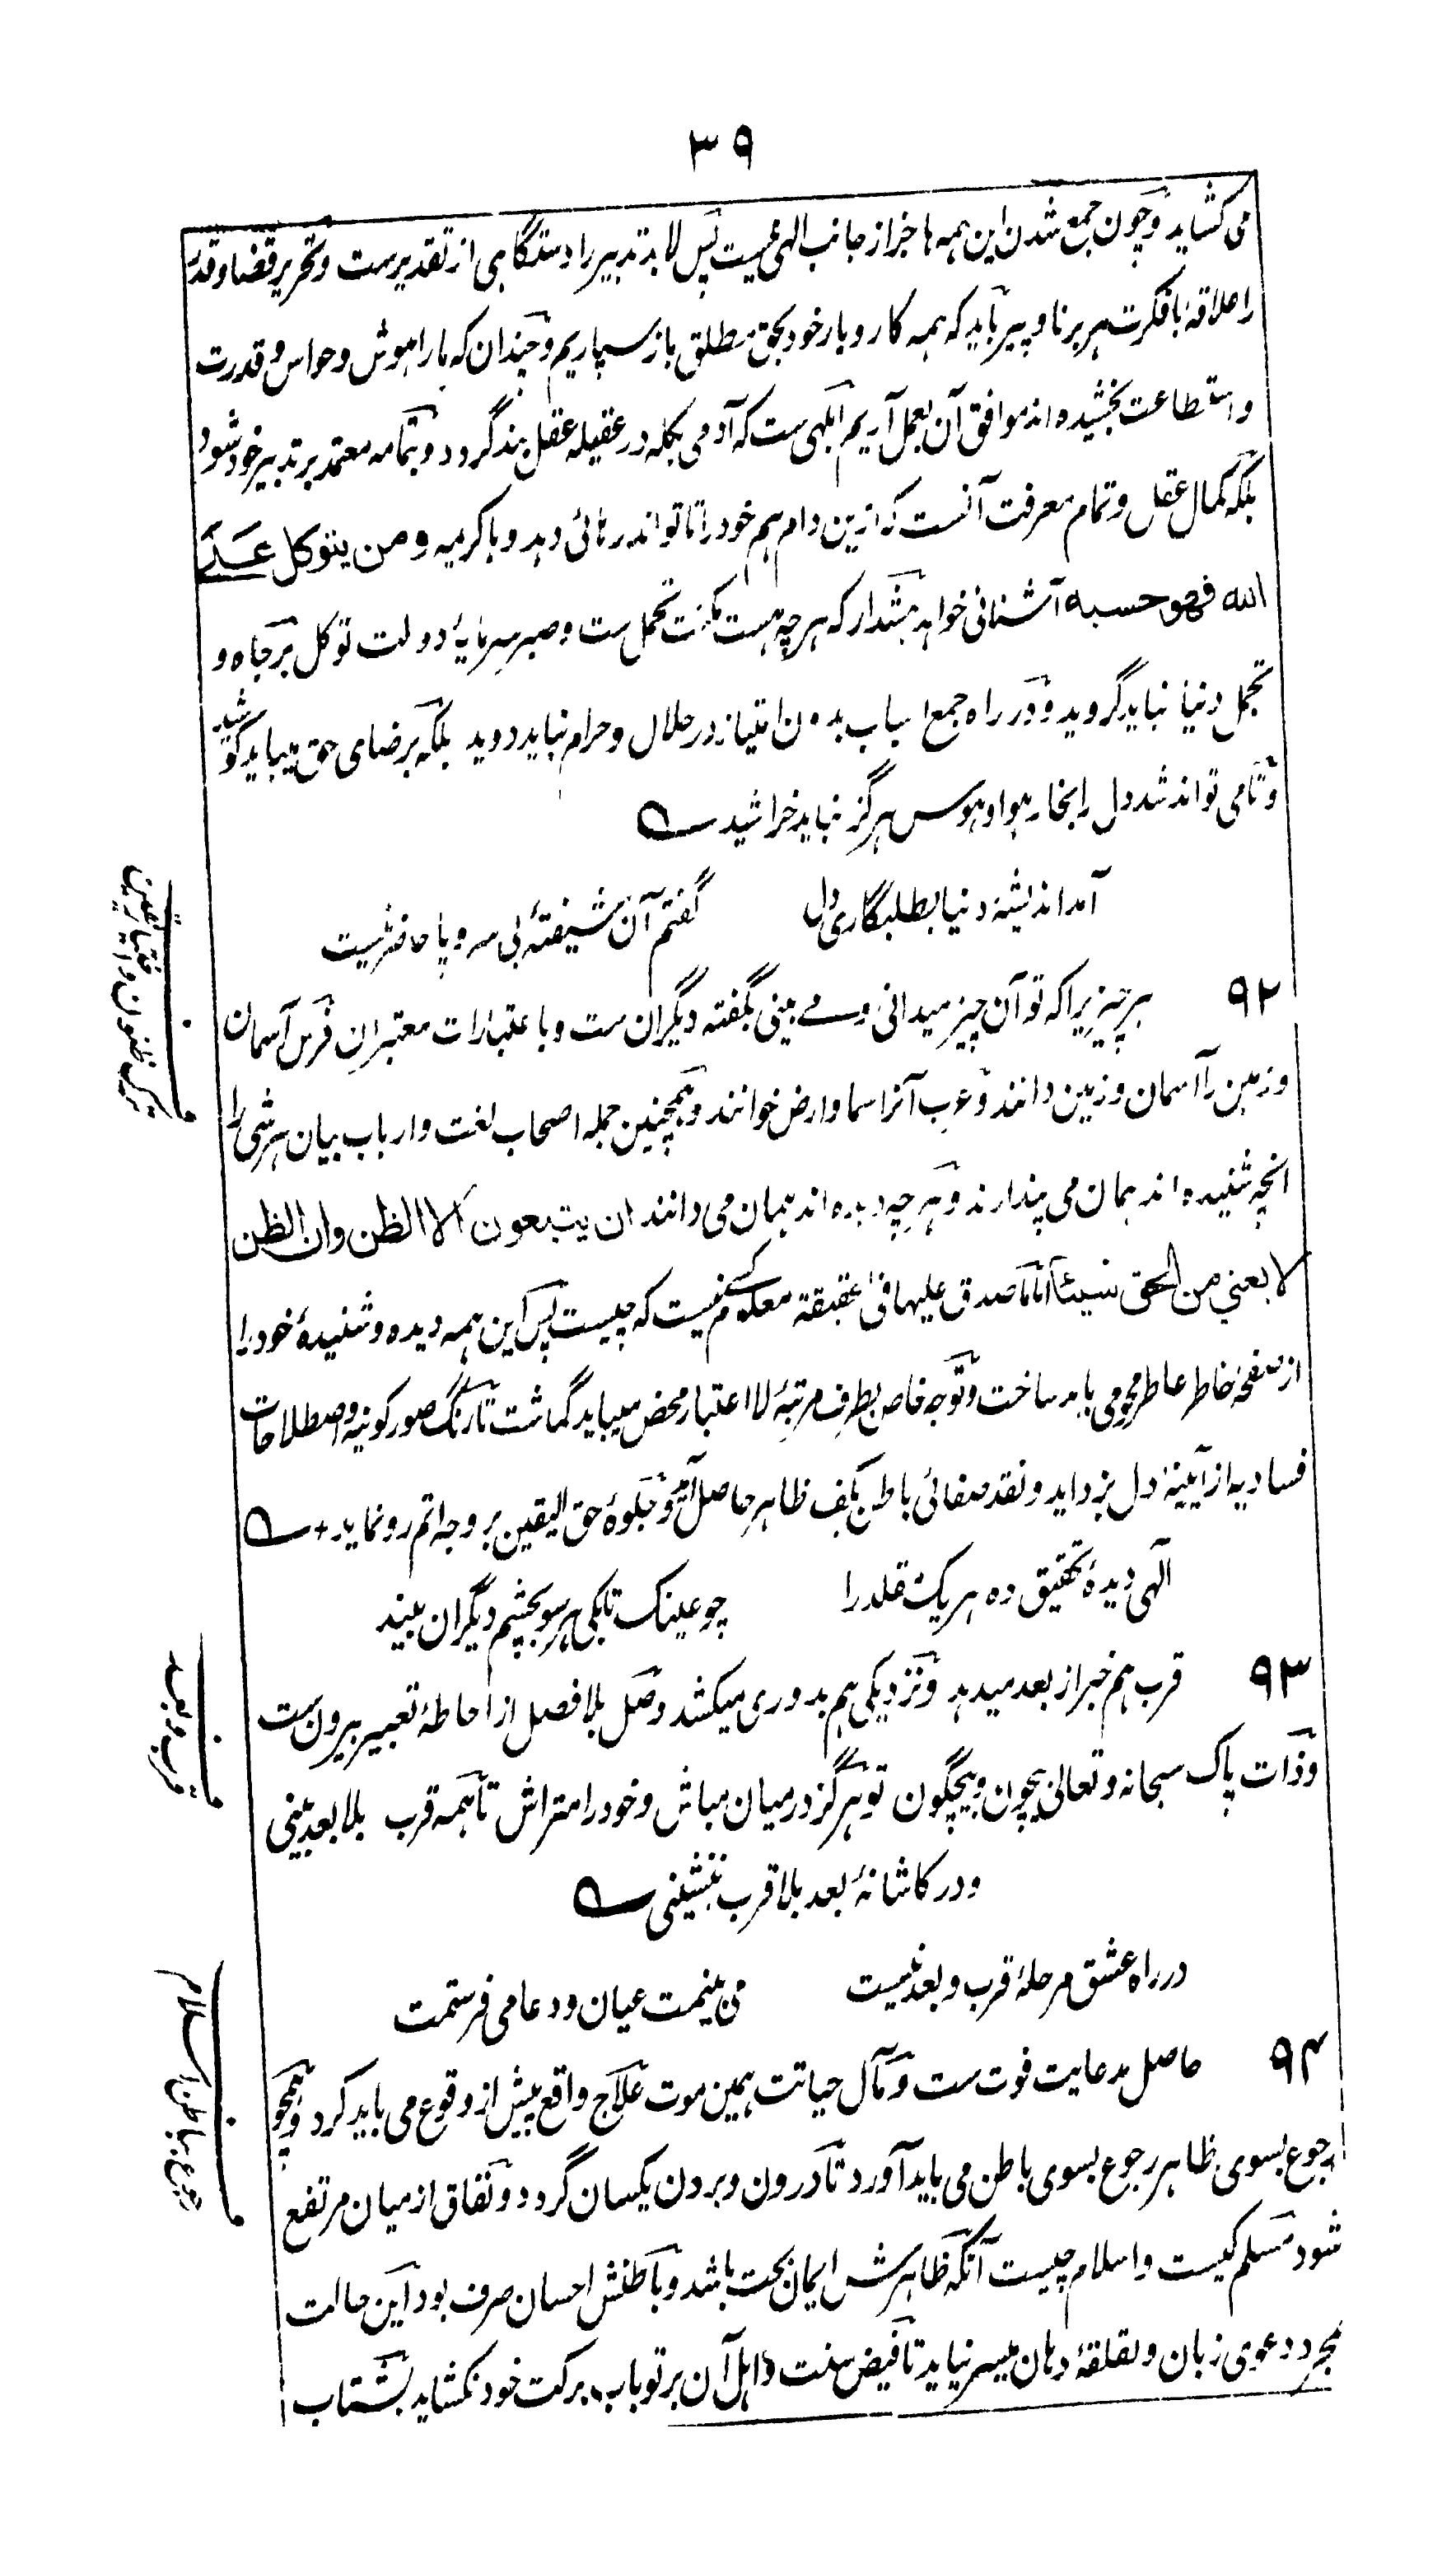 ۳۹
می کشاید و چون جمع شدن این همه ها جز از جانب الهی نیست پس لابد تدبیر را دستگاهی از تقدیرست و تحریر قضا و قدر
را علاقهٔ با فکرت هر برنا و پیر باید که همه کار و بار خود بحق مطلق باز سپاریم و چندان که ما را هوش و حواس و قدرت
و استطاعت بخشیده اند موافق آن بعمل آریم ابلهی ست که آدمی بکله در عقیله عقل بند گردد و بتمامه معتمد بر تدبیر خود شود
بلکه کمال عقل و تمام معرفت آنست که ازین دام هم خود را تا تواند رهائی دهد و با کریمه ومن یتوکل علی
الله فهو حسبه آشنائی خواهد هشدار که هر چه هست مکنت تحمل ست و صبر سرمایهٔ دولت توکل بر جاه و
تجمل دنیا نباید گروید و در راه جمع اسباب بدون امتیاز در حلال و حرام نباید دوید بلکه برضای حق میباید کوشید
و تا می تواند شد دل را بخار هوا و هوس هرگز نباید خراشید
آمد اندیشهٔ دنیا بطلبگاری دل
گفتم آن شیفتهٔ بی سر و پا حاضر نیست
۹۲ هر چیز یرا که تو آن چیز میدانی و می بینی بگفته دیگران ست و باعتبارات معتبران فرس آسمان
و زمین را آسمان و زمین دانند و عرب آنرا سما و ارض خوانند و همچنین جمله اصحاب لغت و ارباب بیان هر شی را
انچه شنیده اند همان می پندارند و هر چه دیده اند همان می دانند ان یتبعون الا الظن وان الظن
لا یغنی من الحق شیئا اما ما صدق علیها فی الحقیقة معلوم کسے نیست که چیست پس این همه دیده و شنیدهٔ خود را
از صفحهٔ خاطر عاطر محو می باید ساخت و توجه خاص بطرف مرتبهٔ لا اعتبار محض میباید گماشت تا رنگ صور کونیه و اصطلاحات
فسادیه از آیینهٔ دل بزداید و نقد صفائی باطن بکف ظاهر حاصل آید و جلوهٔ حق الیقین بر وجه اتم رو نماید +
الهی دیدهٔ تحقیق ده هر یک مقلد را
چو عینک تا بکی هر سو بچشم دیگران بیند
۹۳ قرب هم خبر از بعد میدهد و نزدیکی هم بدوری میکشد وصل بلا فصل از احاطهٔ تعبیر بیرون ست
و ذات پاک سبحانه و تعالی بیچون و بیچگون تو هرگز درمیان مباش و خود را متراش تا همه قرب بلا بعد بینی
و در کاشانهٔ بعد بلا قرب ننشینی
در راه عشق مرحلهٔ قرب و بعد نیست
می بینمت عیان و دعا می فرستمت
۹۴ حاصل مدعایت فوت ست و مآل حیاتت همین موت علاج واقع پیش از وقوع می باید کرد و همچو
رجوع بسوی ظاهر رجوع بسوی باطن می باید آورد تا درون و برون یکسان گردد و نفاق از میان مرتفع
شود مسلم کیست و اسلام چیست آنکه ظاهرش ایمان بحت باشد و باطنش احسان صرف بود این حالت
بمجرد دعوی زبان و لقلقهٔ دهان میسر نیاید تا فیض سنت و اهل آن بر تو باب برکت خود نکشاید بشتاب
ترک ظنون و اختیار یقین
قرب و بعد
رجوع بباطن اسلام